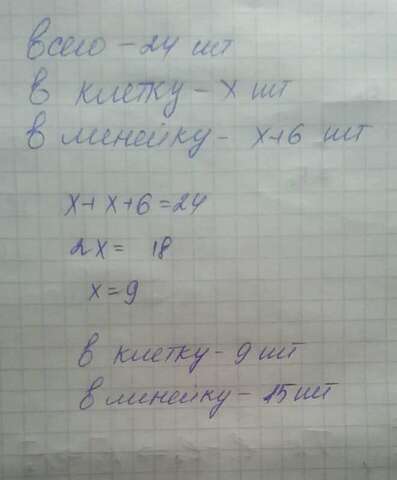 Всего - 24 шт
В клетку - х шт
В линейку - х+6 шт
х+х+6=24
2х= 18
х=9
В клетку - 9 шт
В линейку - 15 шт